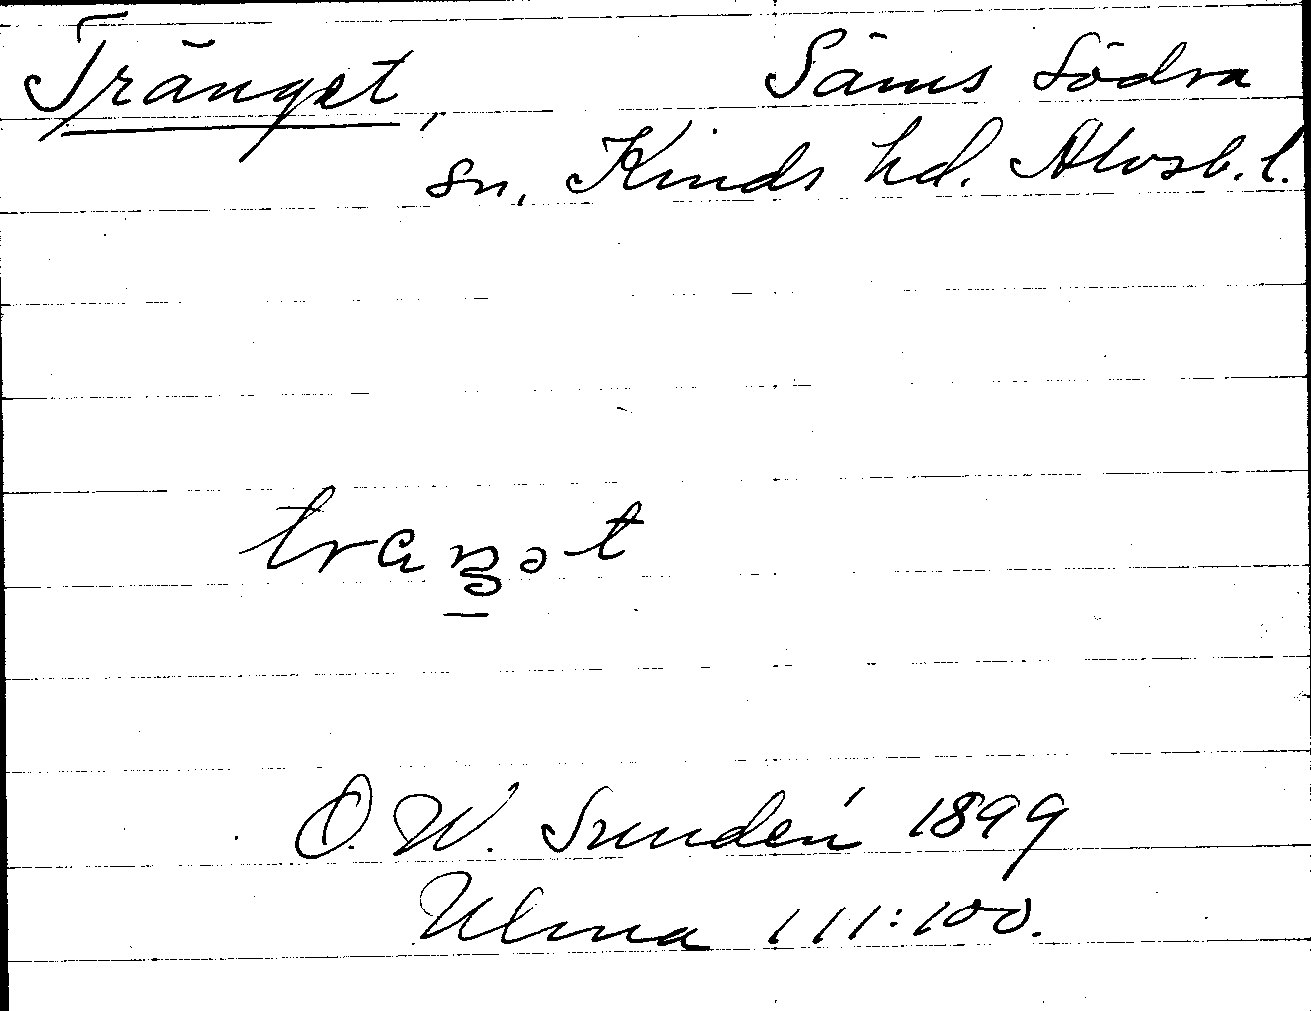 Tränget, Säms Södra
sn, Kinds hd. Älvsb. l.
traŋət
O. W. Sundén 1899
Ulma 111:100.